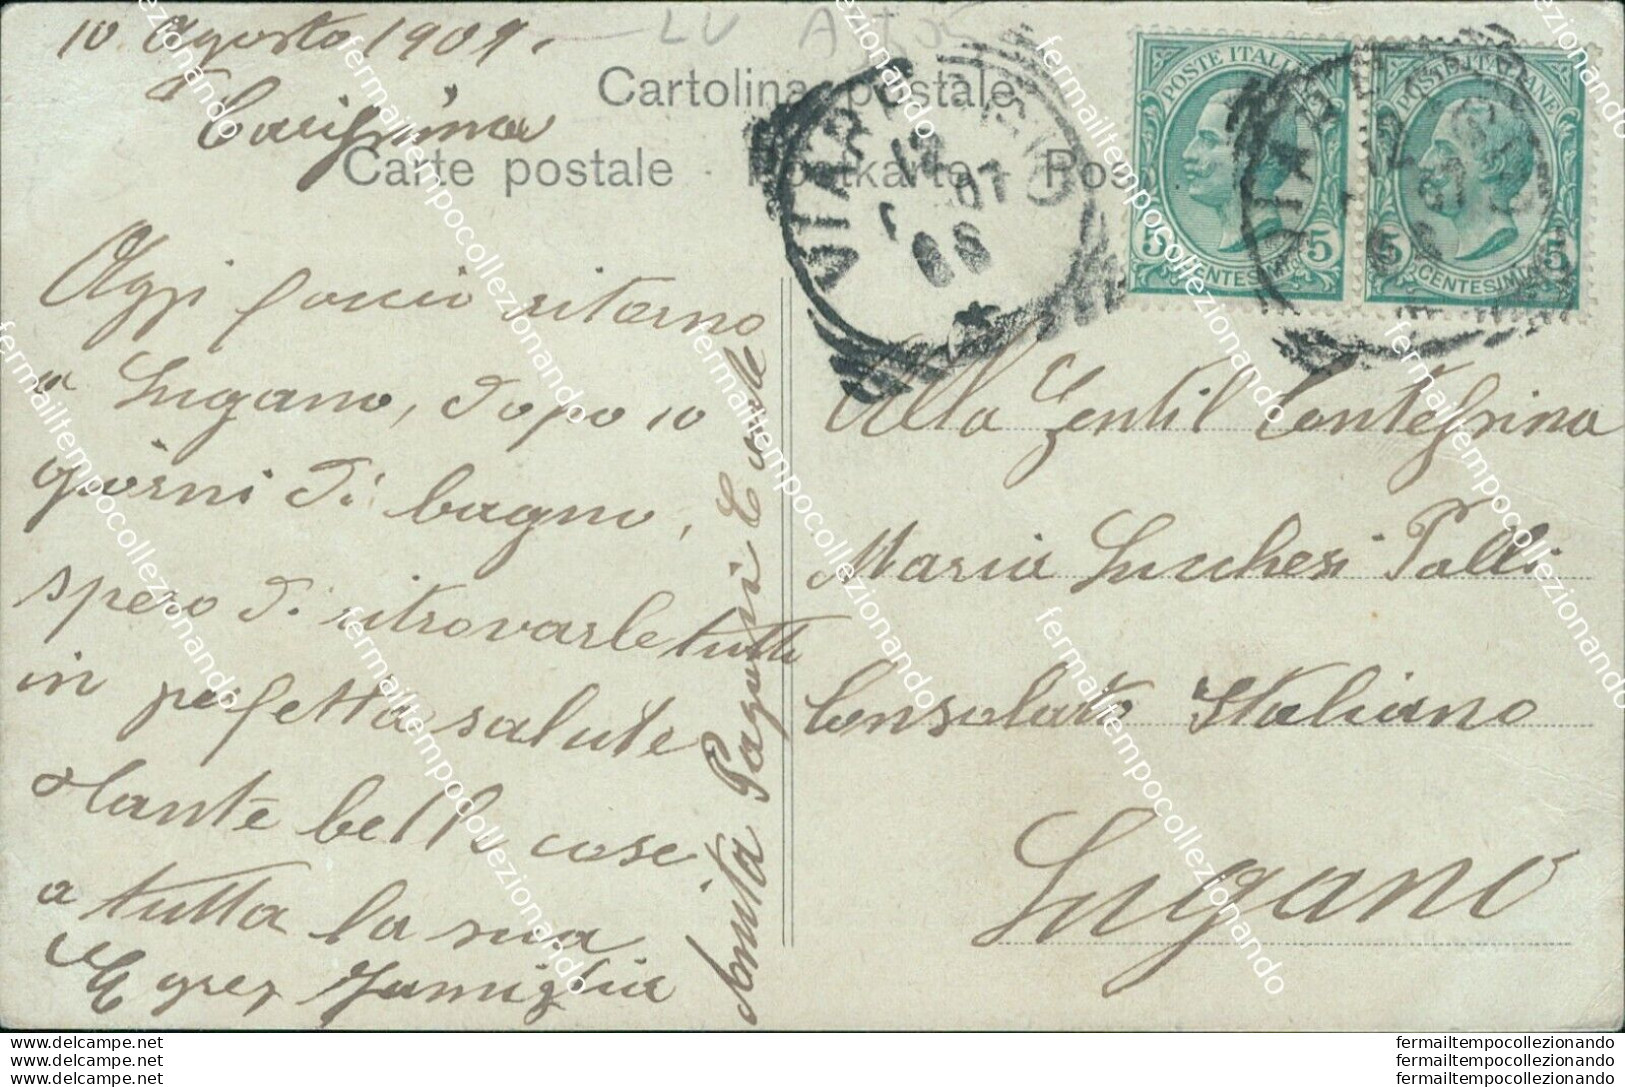 10 Agosto 1909.
LV A
Cartolina postale
Carte postale Postkarte Pos
VIAREGGIO
12
07
POSTE ITALIANE
5 CENTESIMI 5
POSTE ITALIANE
5 CENTESIMI 5
Oggi faccio ritorno
a Lugano, dopo 10
giorni di bagno,
spero di ritrovarle tutti
in perfetta salute
tante belle cose
a tutta la sua
Egreg Famiglia
Pagani
Alla Gentil Contessina
Maria Lucchesi Palli
Consolato Italiano
Lugano
www.delcampe.net
www.delcampe.net
www.delcampe.net
fermailtempocollezionando
fermailtempocollezionando
fermailtempocollezionando